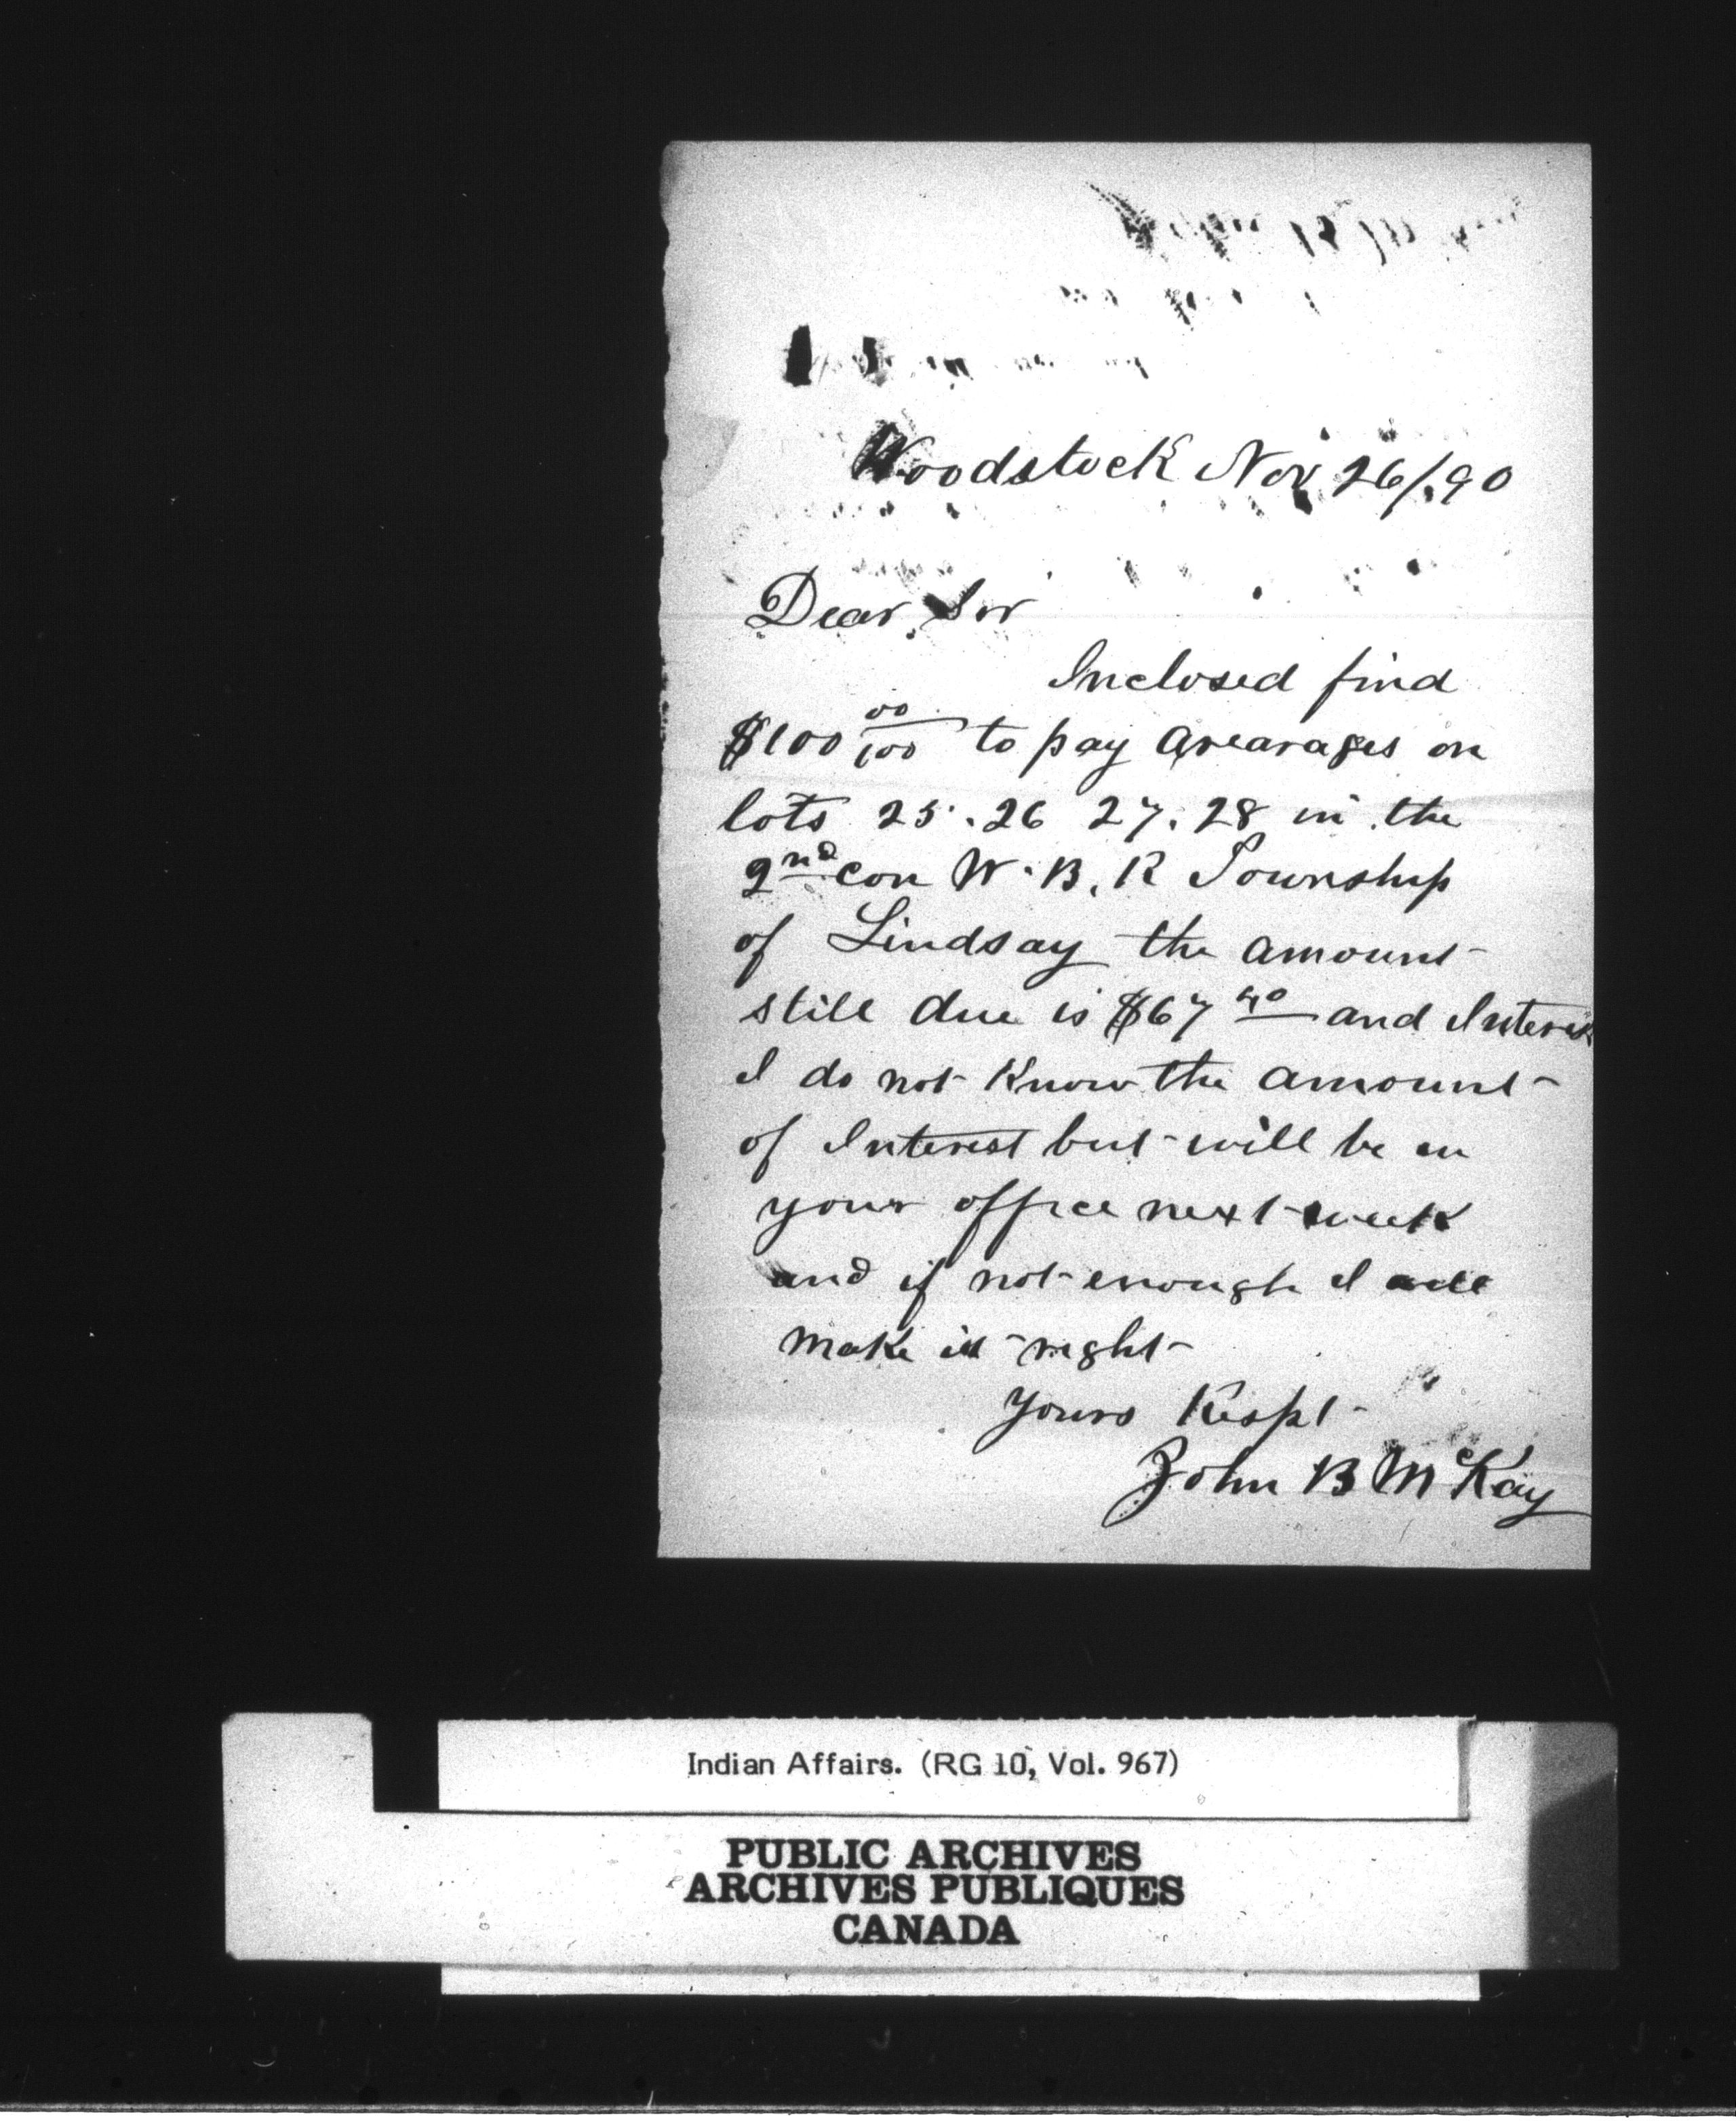 Woodstock Nov 26/90
Dear Sir
Inclosed find
$100 00/100 to pay arearages on
lots 25. 26 27. 28 in the
2nd con W. B. R Township
of Lindsay the amount
still due is $67 40 and Interest
I do not Know the amount
of Interest but will be in
your office next week
and if not enough I will
make it right
Yours Respt
John B McKay
Indian Affairs. (RG 10, Vol. 967)
PUBLIC ARCHIVES
ARCHIVES PUBLIQUES
CANADA